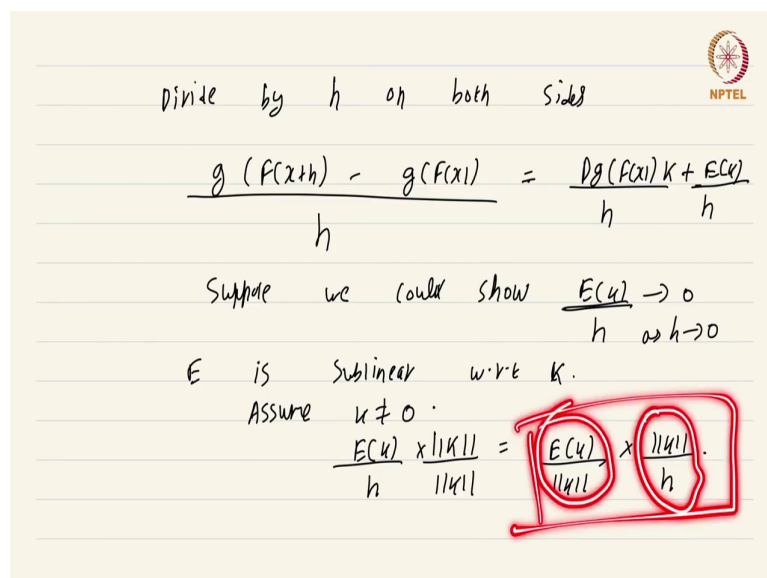 NPTEL
Divide by h on both sides
g (F(x+h) - g(F(x)) / h = Dg(F(x)) K / h + E(K) / h
Suppose we could show E(K) / h → 0 as h→0
E is sublinear w.r.t K.
Assure K ≠ 0.
E(K) / h × ||K|| / ||K|| = E(K) / ||K|| × ||K|| / h .